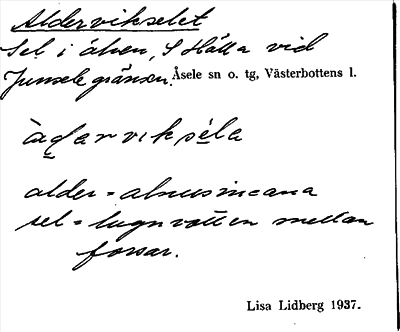 Aldervikselet
Sel i älven, S Hälla vid
Junsele gränsen. Åsele sn o. tg, Västerbottens l.
àḍarviksela
alder = alnus incana
sel = lugnvatten mellan
forsar.
Lisa Lidberg 1937.